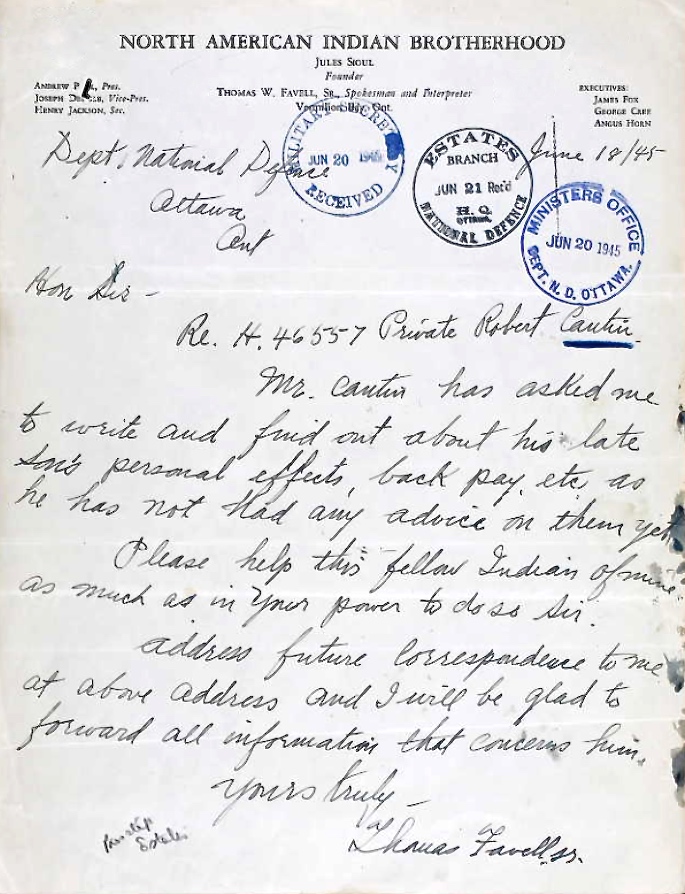 NORTH AMERICAN INDIAN BROTHERHOOD
JULES SIOUI
Founder
ANDREW P , Pres.
THOMAS W. FAVELL, SR., Spokesman and Interpreter
EXECUTIVES:
JOSEPH , Vice-Pres.
Vermilion Bay, Ont.
JAMES FOX
HENRY JACKSON, Sec.
GEORGE CREE
ANGUS HORN
MILITARY SECRETARY
JUN 20 1945
RECEIVED
ESTATES
BRANCH
JUN 21 Rec'd
H. Q.
OTTAWA
NATIONAL DEFENCE
MINISTERS OFFICE
JUN 20 1945
DEPT. N. D. OTTAWA.
June 18/45
Dept. National Defence
Ottawa
Ont
Hon Sir -
Re. H. 46557 Private Robert Cantin
Mr. Cantin has asked me
to write and find out about his late
son's personal effects, back pay, etc as
he has not Had any advice on them yet
Please help this fellow Indian of mine
as much as in your power to do so Sir.
address future Correspondence to me
at above address and I will be glad to
forward all information that concerns him.
Yours truly -
Thomas Favell, sr.
Estates